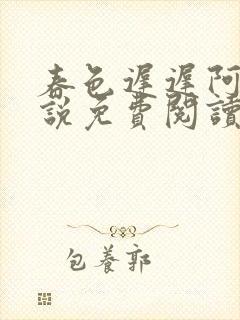 春色遲遲阿
說免費閱讀
包養郭